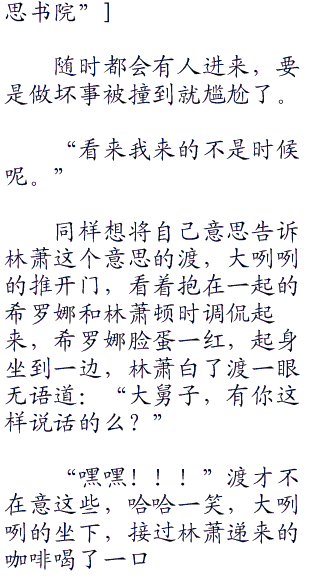 思书院”]
随时都会有人进来，要
是做坏事被撞到就尴尬了。
“看来我来的不是时候
呢。”
同样想将自己意思告诉
林萧这个意思的渡，大咧咧
的推开门，看着抱在一起的
希罗娜和林萧顿时调侃起
来，希罗娜脸蛋一红，起身
坐到一边，林萧白了渡一眼
无语道：“大舅子，有你这
样说话的么？”
“嘿嘿！！！”渡才不
在意这些，哈哈一笑，大咧
咧的坐下，接过林萧递来的
咖啡喝了一口